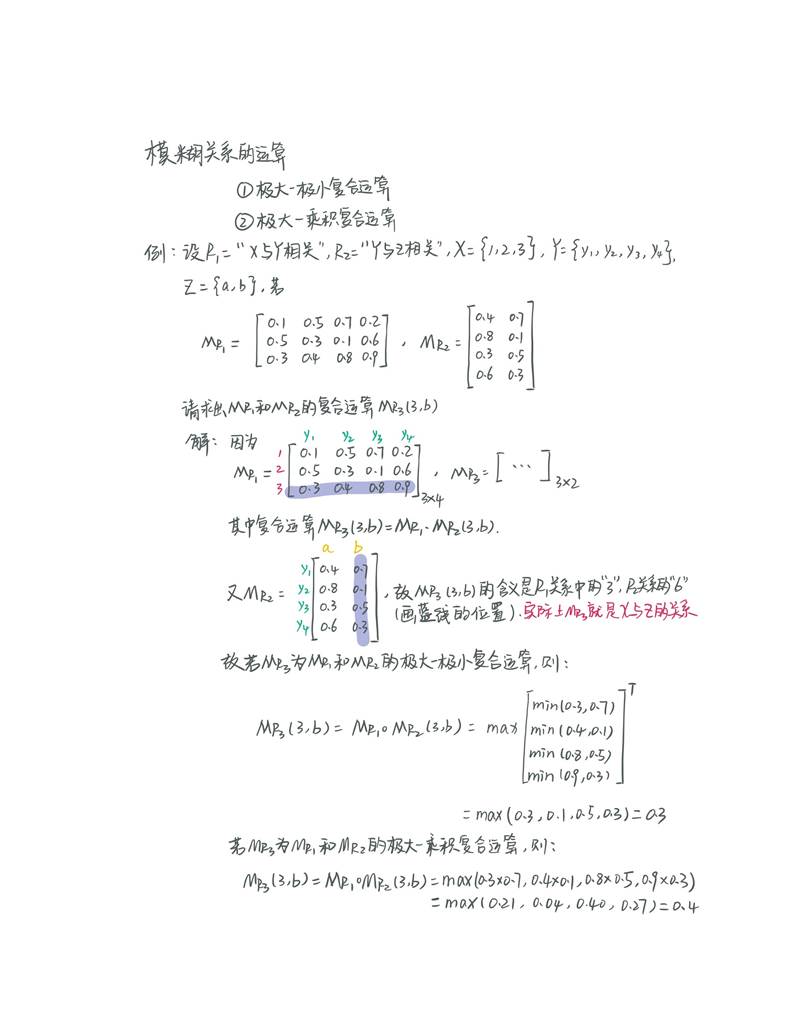 模糊关系的运算
①极大-极小复合运算
②极大-乘积复合运算
例：设R₁="X与Y相关", R₂="Y与Z相关", X={1,2,3}, Y={y₁,y₂,y₃,y₄},
Z={a,b},若
M_R₁ = [0.1 0.5 0.7 0.2; 0.5 0.3 0.1 0.6; 0.3 0.4 0.8 0.9], M_R₂ = [0.4 0.7; 0.8 0.1; 0.3 0.5; 0.6 0.3]
请求出M_R₁和M_R₂的复合运算M_R₃(3,b)
解：因为
y₁ y₂ y₃ y₄
M_R₁ = 1 [0.1 0.5 0.7 0.2; 2 0.5 0.3 0.1 0.6; 3 0.3 0.4 0.8 0.9]₃ₓ₄, M_R₃ = [⋯]₃ₓ₂
其中复合运算M_R₃(3,b)=M_R₁·M_R₂(3,b).
a b
又M_R₂ = y₁ [0.4 0.7; y₂ 0.8 0.1; y₃ 0.3 0.5; y₄ 0.6 0.3], 故M_R₃(3,b)的含义是R₁关系中的"3", R₂关系的"b"
(画蓝线的位置).实际上M_R₃就是X与Z的关系
故若M_R₃为M_R₁和M_R₂的极大-极小复合运算,则：
M_R₃(3,b) = M_R₁∘M_R₂(3,b) = max [min(0.3,0.7); min(0.4,0.1); min(0.8,0.5); min(0.9,0.3)]ᵀ
=max(0.3,0.1,0.5,0.3)=0.3
若M_R₃为M_R₁和M_R₂的极大-乘积复合运算,则：
M_R₃(3,b)=M_R₁∘M_R₂(3,b)=max(0.3×0.7, 0.4×0.1, 0.8×0.5, 0.9×0.3)
=max(0.21, 0.04, 0.40, 0.27)=0.4